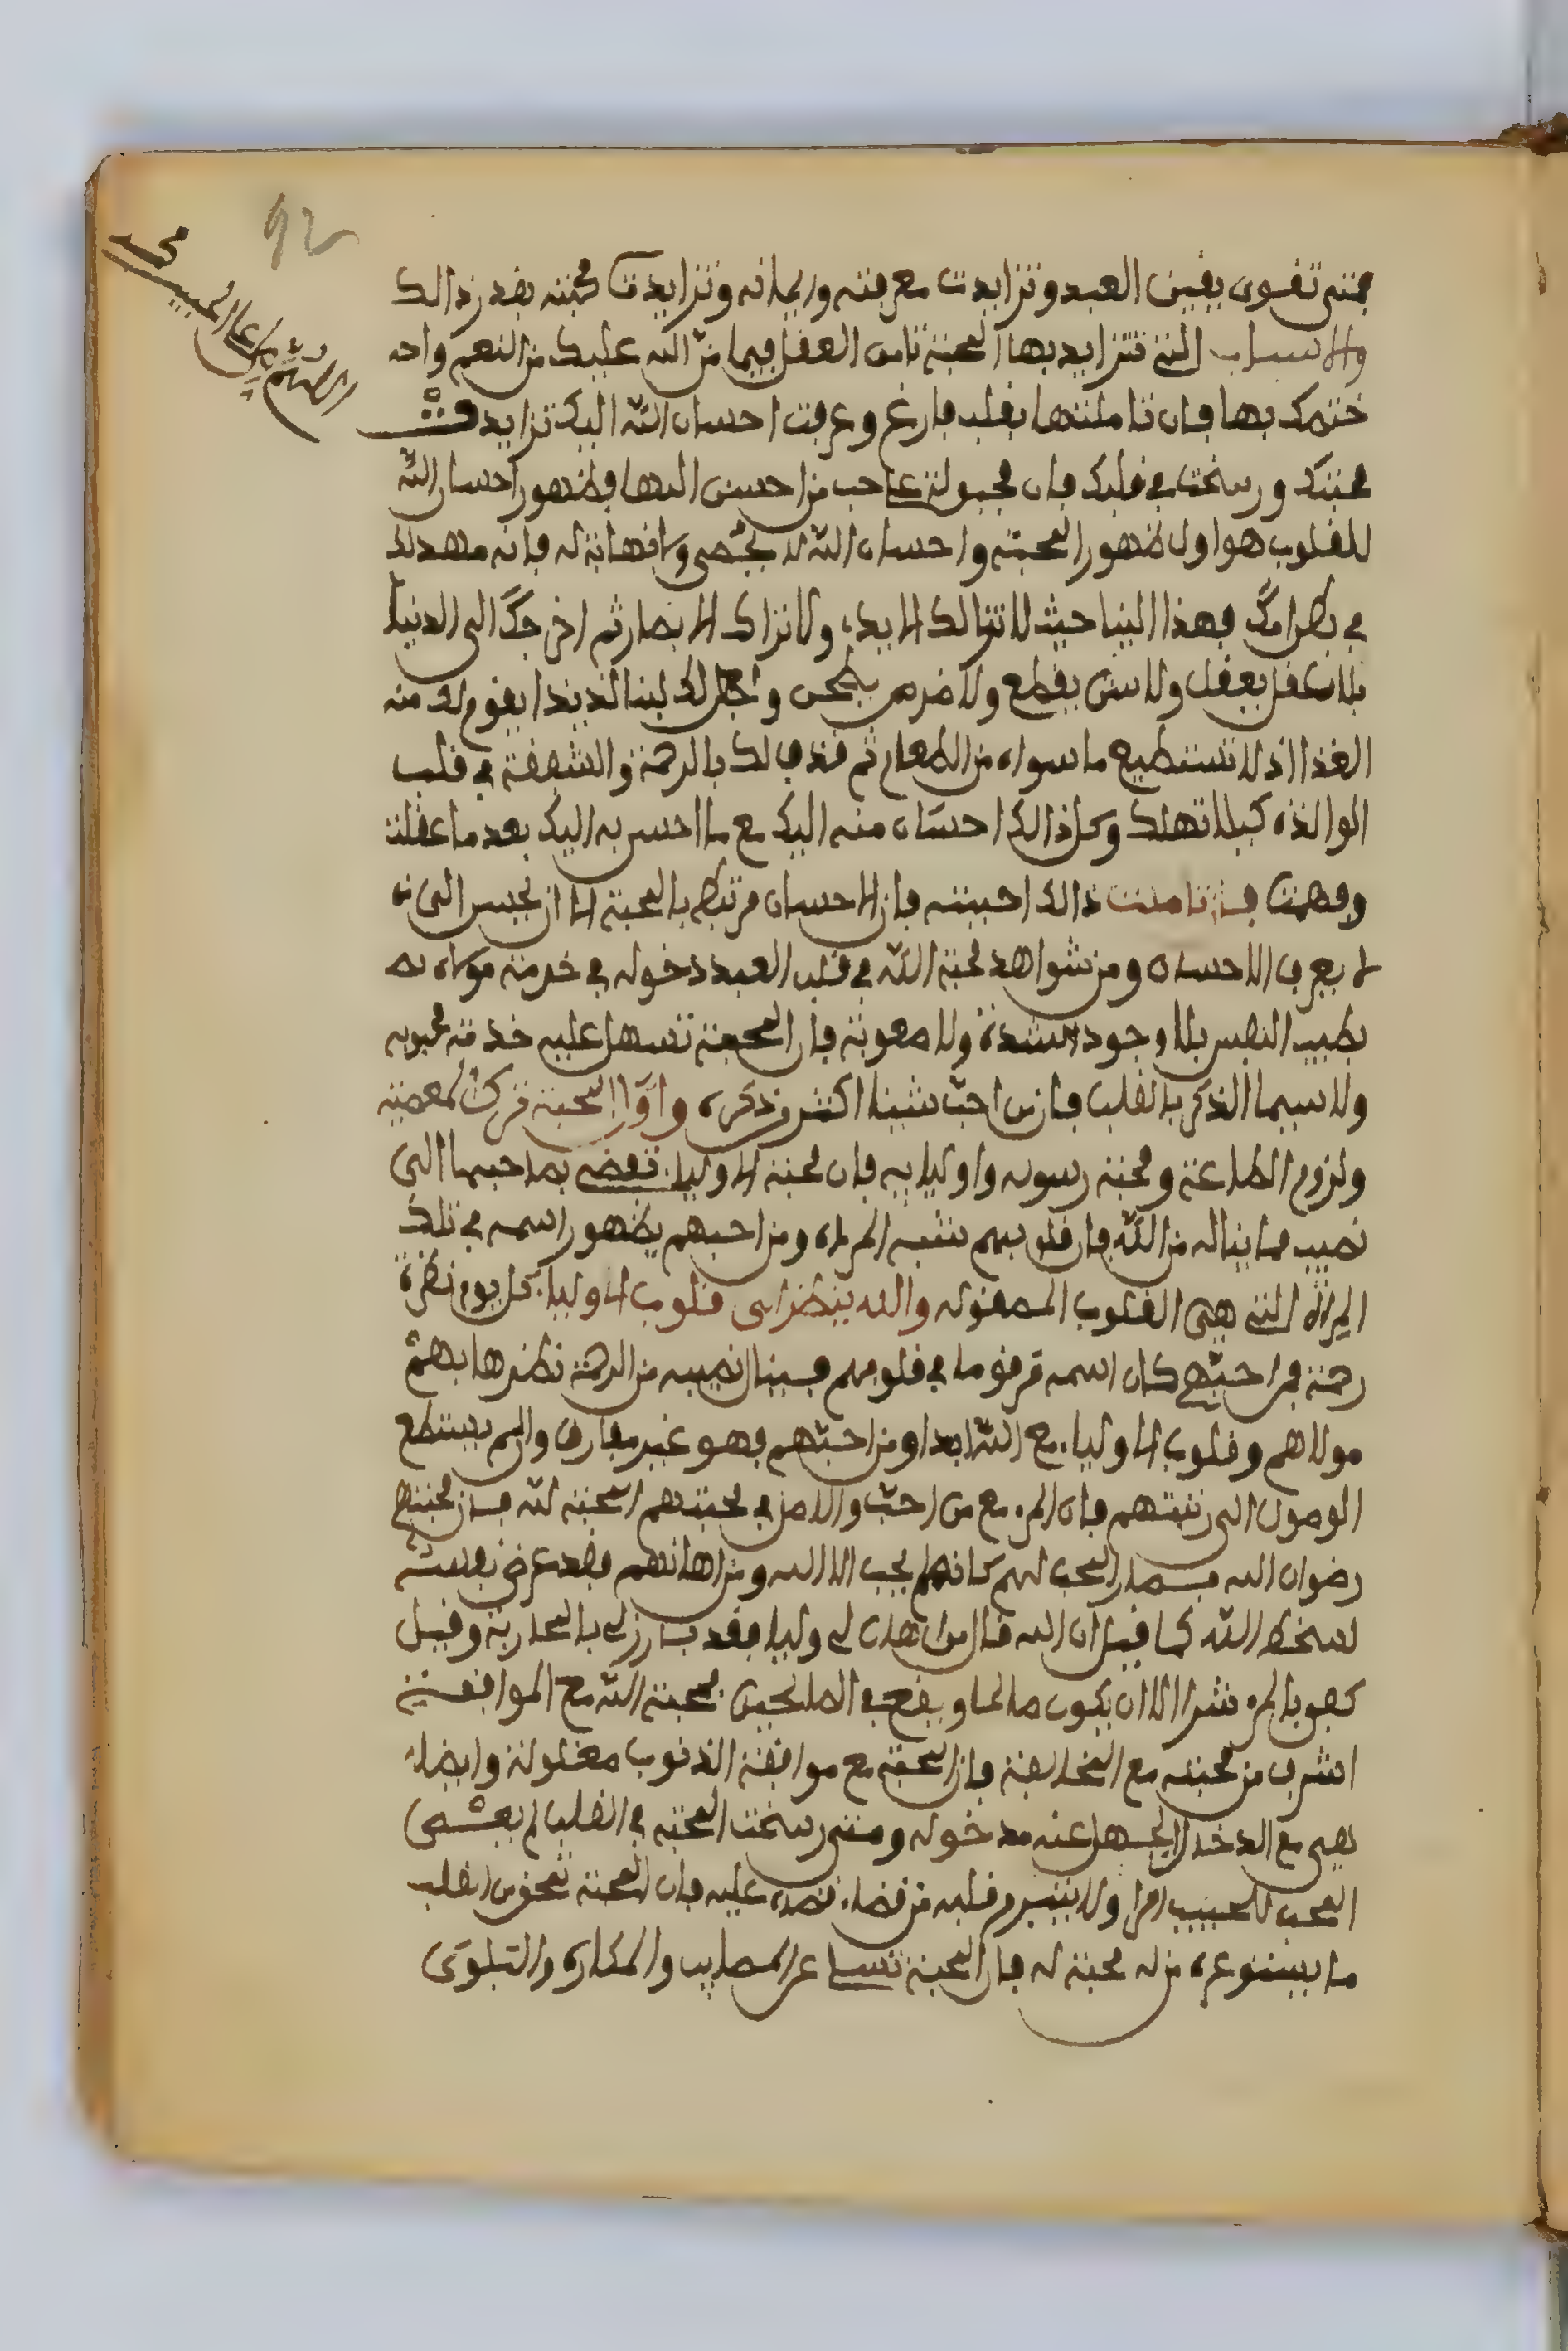 92
اللهم صل على الحبيب محمد
فمتى تقوى يقين العبد وتزايدت معرفته وايمانه وتزايدت محبته بقدر ذالك
والاسباب التي تتزايد بها المحبة تامل العقل فيما من الله عليك من النعم واد
ختمك بها فان تاملتها بقلب فارغ وعرفت احسان الله اليك تزايدت
محبتك ورسخت في قلبك فان مجبولة على حب من احسن اليها فظهور احسان الله
للقلوب هو اول ظهور المحبة واحسان الله لا يحصى ولا نهاية له فانه مهد لك
في بطن امك فهذا البنا حيث لا تنالك الايد ولا تراك الابصار ثم اخرجك الى الدنيا
بلا عقل يعقل ولا سن يقطع ولا ضرس يطحن واجعل لك لبنا لذيذا يقوم لك منه
الغذا اذ لا تستطيع ما سواه من الطعام ثم قذف لك بالرحمة والشفقة في قلب
الوالدة كيلا تهلك وكل ذالك احسان منه اليك مع ما احسن به اليك بعد ما عقلت
وفهمت فان تاملت ذالك احببته فان الاحسان مرتبط بالمحبة الا ان خسيس الى
لا يعرف الاحسان ومن شواهد محبة الله في قلب العبد دخوله في خدمة مولاه
بطيب النفس بلا وجود شدة ولا صعوبة فان المحبة تسهل عليه خدمة محبوبه
ولا سيما الذكر بالقلب فان من احب شيئا اكثر من ذكره واول المحبة ترك المعصية
ولزوم الطاعة ومحبة رسوله واوليايه فان محبة الاوليا تفضي بصاحبها الى
نصيب مما يناله من الله فان قلوبهم تشبه المراه ومن احبهم يظهور اسمه في تلك
المراة التي هي القلوب المصقولة والله ينظر الى قلوب الاوليا كل يوم نظرة
رحمة فمن احبهم كان اسمه مرقوما في قلوبهم فينال نصيبه من الرحمة نظرها بهم
مولاهم وقلوب الاوليا مع الله ابدا ومن احبهم فهو غير مفارق وان لم يستطع
الوصول الى رتبتهم فان المرء مع من احب والاصل في محبتهم المحبة لله فان محبتهم
رضوان الله فصار المحب لهم كانه لم يحب الا الله ومن اهانهم فقد عرض نفسه
لسخط الله كما قيل ان الله قال من اهان لي وليا فقد بارزني بالمحاربة وقيل
كفى بالمرء شرا الا ان يكون صالحا ويقع في الصالحين محبة الله مع الموافقة
اشرف من محبته مع المخالفة فان المحبة مع موافقة الذنوب معلولة وايضا
فهي مع الدخل ومتى رسخت المحبة في القلب لم يعصى
المحب للحبيب امرا ولا يتبرم قلبه من قضاء قضاه عليه فان المحبة تمحو من القلب
ما يستوعره من له محبة له فان المحبة تسلي عن المصايب والمكاره والتبلوى